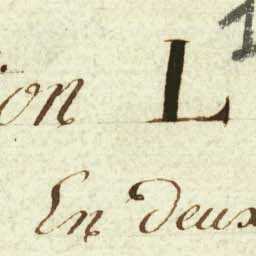 ion L
En deux